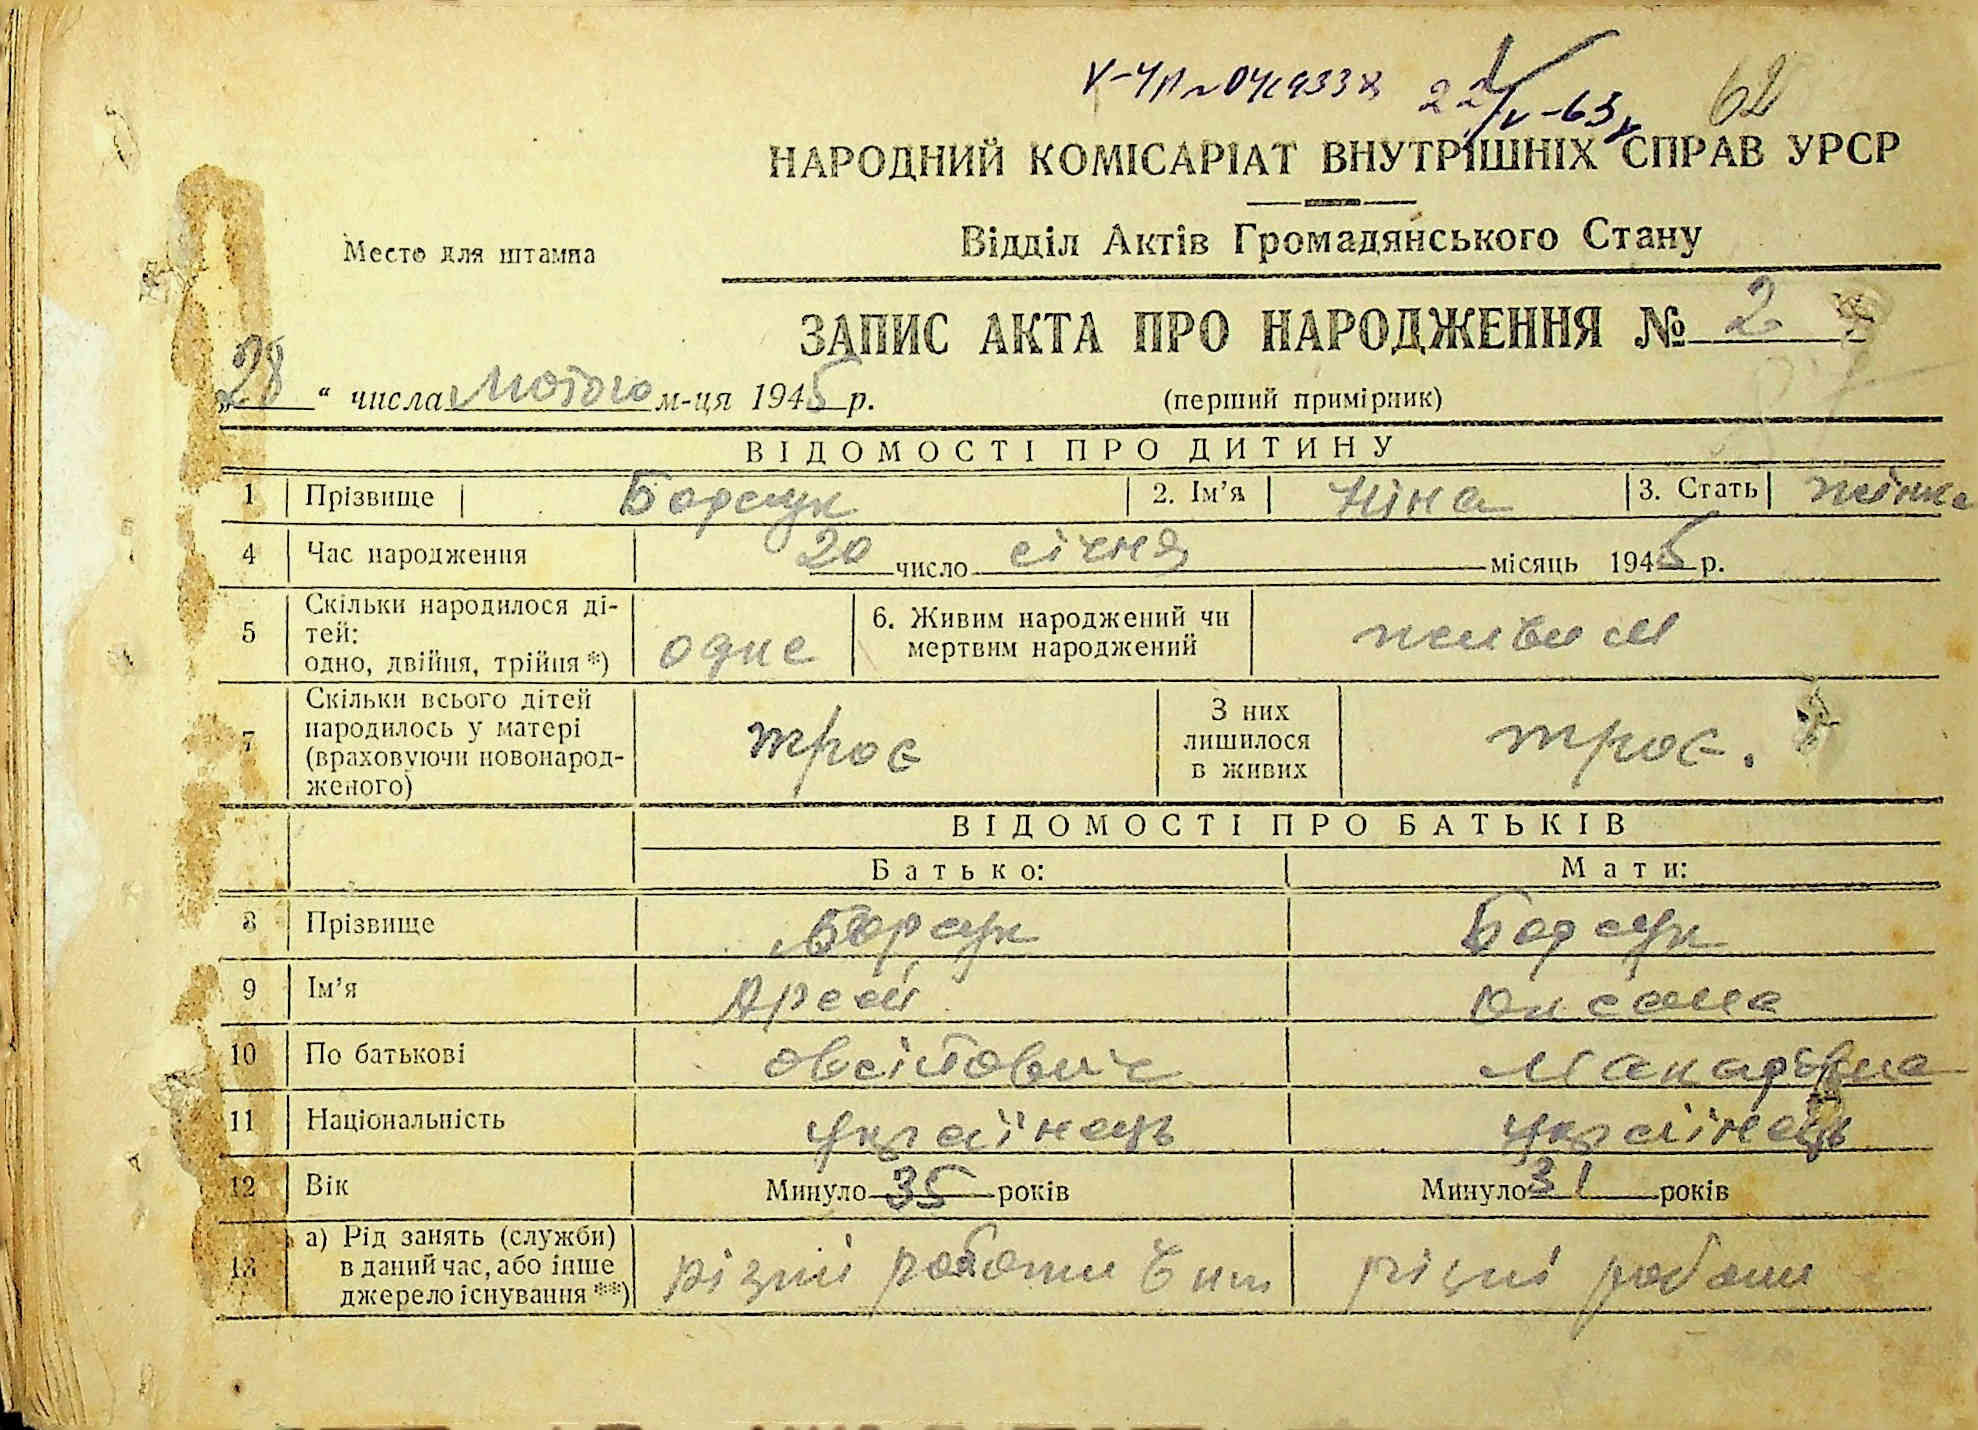 22/V-63
62
НАРОДНИЙ КОМІСАРІАТ ВНУТРІШНІХ СПРАВ УРСР
Место для штампа
Відділ Актів Громадянського Стану
ЗАПИС АКТА ПРО НАРОДЖЕННЯ № 2
„28“ числа лютого м-ця 1945 р.
(перший примірник)
ВІДОМОСТІ ПРО ДИТИНУ
1 Прізвище Борсук 2. Ім’я Ніна 3. Стать жінка
4 Час народження 20 число січня місяць 1945 р.
5 Скільки народилося дітей: одно, двійня, трійня *) одне 6. Живим народжений чи мертвим народжений живим
7 Скільки всього дітей народилось у матері (враховуючи новонародженого) троє З них лишилося в живих троє.
ВІДОМОСТІ ПРО БАТЬКІВ
Батько: Мати:
8 Прізвище Борсук Борсук
9 Ім’я Арсій Оксана
10 По батькові Овсійович Макарівна
11 Національність українець українець
12 Вік Минуло 35 років Минуло 31 років
13 а) Рід занять (служби) в даний час, або інше джерело існування **) різні роботи різні роботи